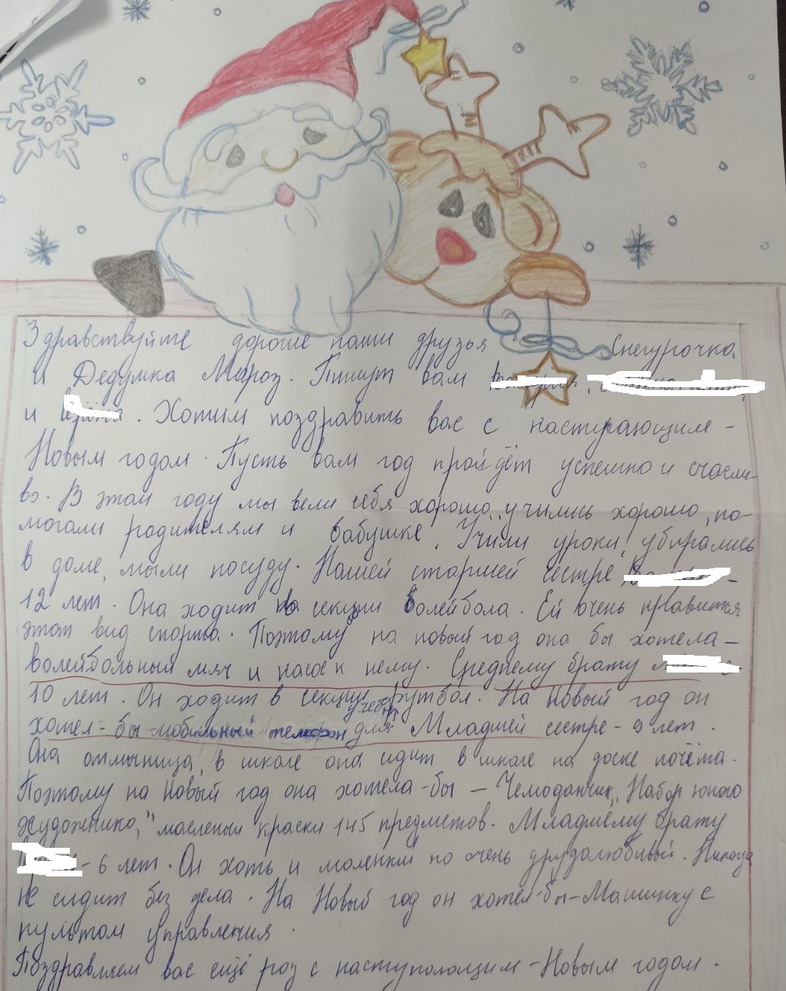 Здравствуйте дорогие наши друзья Снегурочка
и Дедушка Мороз. Пишут вам
и. Хотим поздравить вас с наступающим-
Новым годом. Пусть вам год пройдёт успешно и счасли
во. В этом году мы вели себя хорошо, учились хорошо, по-
могали родителям и бабушке. Учили уроки, убирались
в доме, мыли посуду. Нашей старшей сестре
12 лет. Она ходит на секции волейбола. Ей очень нравится
этот вид спорта. Поэтому на новый год она бы хотела-
волейбольный мяч и насос к нему. Среднему брату
10 лет. Он ходит в секцию футбол. На Новый год он
хотел-бы мобильный телефон для учёбы Младшей сестре-9 лет.
Она отличница, в школе она сидит в школе на доске почёта.
Поэтому на Новый год она хотела-бы - Чемоданчик, "Набор юного
художника," масленый краски 145 предметов. Младшему брату
-6 лет. Он хоть и маленкий но очень трудолюбивый. Никогда
не сидит без дела. На Новый год он хотел-бы-Машинку с
пультом управления.
Поздравляем вас ещё роз с наступающим-Новым годом.